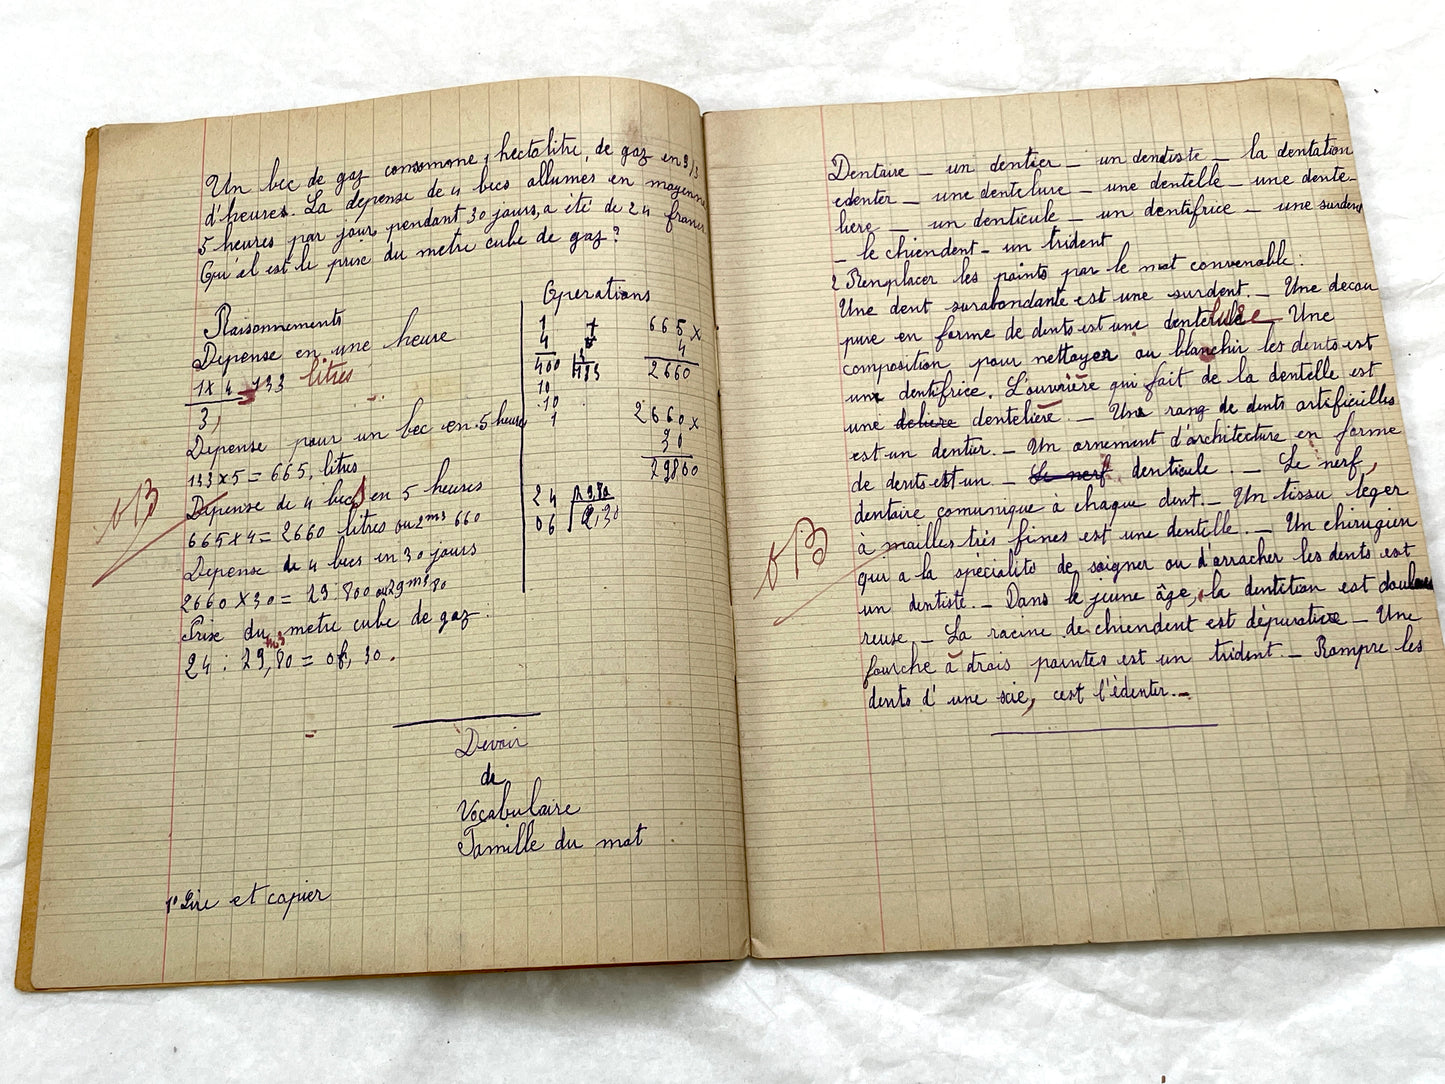 Un bec de gaz consomme 1 hectolitre, de gaz en 3/3
d'heures. La depense de 4 becs allumés en moyenne
5 heures par jour, pendant 30 jours, a été de 24 francs
Qu'el est le prise du metre cube de gaz?
Raisonnements
Depense en une heure
1 x 4 = 133 litres
3,
Depense pour un bec en 5 heures
133 x 5 = 665, litres
Depense de 4 becs en 5 heures
665 x 4 = 2660 litres ou 2ms 660
Depense de 4 becs en 30 jours
2660 x 30 = 29 800 ou 29ms 80
Prise du metre cube de gaz.
24 : 29,80 = 0f, 30.
Operations
1
4
400
10
10
1
665 x
4
2660
2660 x
30
29800
24 29.80
06 0,30
VB
Devoir
de
Vocabulaire
Famille du mot
1° Lire et copier
Dentaire _ un dentier _ un dentiste _ la dentation
edenter _ une dentelure _ une dentelle _ une dente-
liere _ un denticule _ un dentifrice _ une surdent
_ le chiendent _ un trident
2 Remplacer les points par le mot convenable :
Une dent surabondante est une surdent. _ Une decou
pure en forme de dents est une dentelure _ Une
composition pour nettoyer ou blanchir les dents est
une dentifrice. L'ouvrière qui fait de la dentelle est
une dentelière. _ Une rang de dents artificielles
est un dentier. _ Un ornement d'architecture en forme
de dents est un _ Le nerf denticule . _ Le nerf,
dentaire comunique à chaque dent. _ Un tissu leger
à mailles très fines est une dentelle. _ Un chirugien
qui a la spécialité de soigner ou d'arracher les dents est
un dentiste. _ Dans le jeune âge, la dentition est doulou
reuse. _ La racine de chiendent est dépurative _ Une
fourche à trois pointes est un trident. _ Rompre les
dents d'une scie, cest l'édenter. _
VB